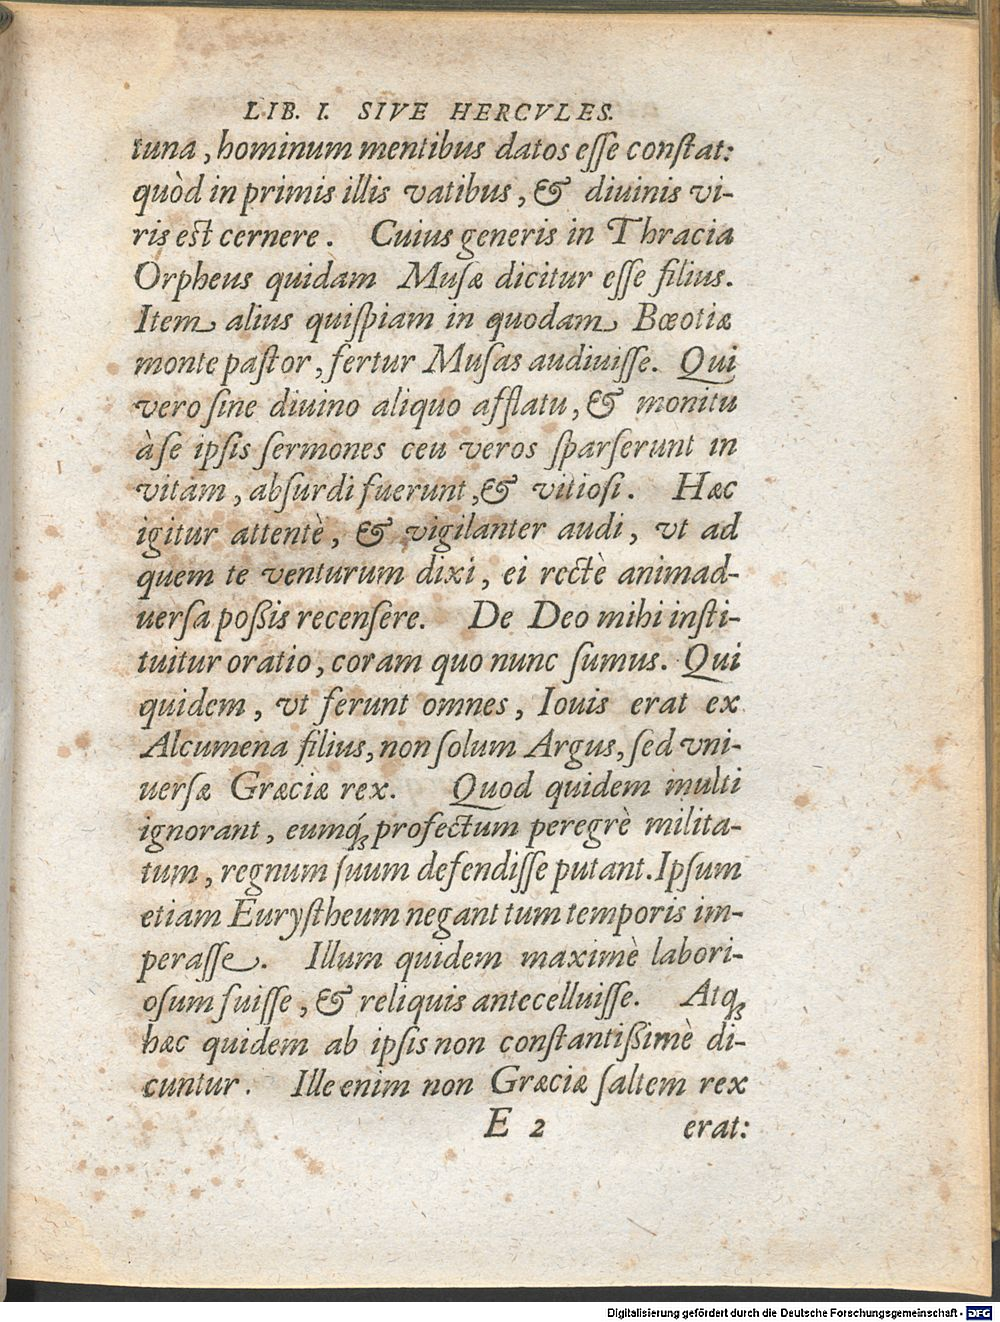 LIB. I. SIVE HERCVLES.
tuna, hominum mentibus datos eſſe conſtat:
quòd in primis illis vatibus, & diuinis vi-
ris est cernere. Cuius generis in Thracia
Orpheus quidam Muſæ dicitur eſſe filius.
Item alius quiſpiam in quodam Bœotiæ
monte paſtor, fertur Muſas audiuiſſe. Qui
vero ſine diuino aliquo afflatu, & monitu
à ſe ipſis ſermones ceu veros ſparſerunt in
vitam, abſurdi fuerunt, & vitioſi. Hæc
igitur attentè, & vigilanter audi, vt ad
quem te venturum dixi, ei rectè animad-
uerſa poßis recenſere. De Deo mihi inſti-
tuitur oratio, coram quo nunc ſumus. Qui
quidem, vt ferunt omnes, Iouis erat ex
Alcumena filius, non ſolum Argus, ſed vni-
uerſæ Græciæ rex. Quod quidem multi
ignorant, eumq́; profectum peregrè milita-
tum, regnum ſuum defendiſſe putant. Ipſum
etiam Euryſtheum negant tum temporis im-
peraſſe. Illum quidem maximè labori-
oſum fuiſſe, & reliquis antecelluiſſe. Atq;
hæc quidem ab ipſis non conſtantißimè di-
cuntur. Ille enim non Græciæ ſaltem rex
E 2 erat:
Digitalisierung gefördert durch die Deutsche Forschungsgemeinschaft - DFG